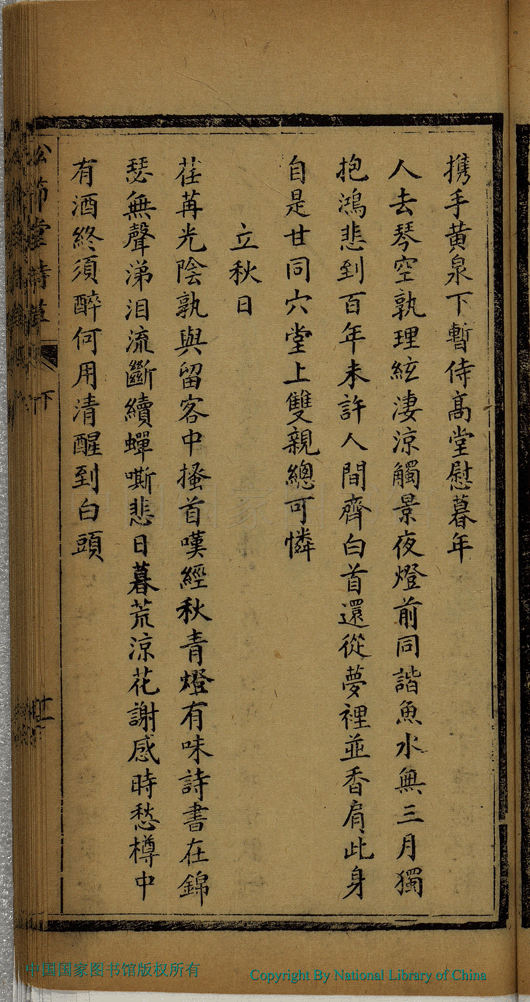 携手黄泉下暫侍高堂慰暮年
人去琴空孰理絃淒涼觸景夜燈前同諧魚水無三月獨
抱鴻悲到百年未許人間齊白首還從夢裡並香肩此身
自是甘同穴堂上雙親總可憐
立秋日
荏苒光陰孰與留客中搔首嘆經秋青燈有味詩書在錦
瑟無聲涕泪流斷續蟬嘶悲日暮荒涼花謝感時愁樽中
有酒終須醉何用清醒到白頭
松節堂詩草 下
中国国家图书馆版权所有
Copyright By National Library of China